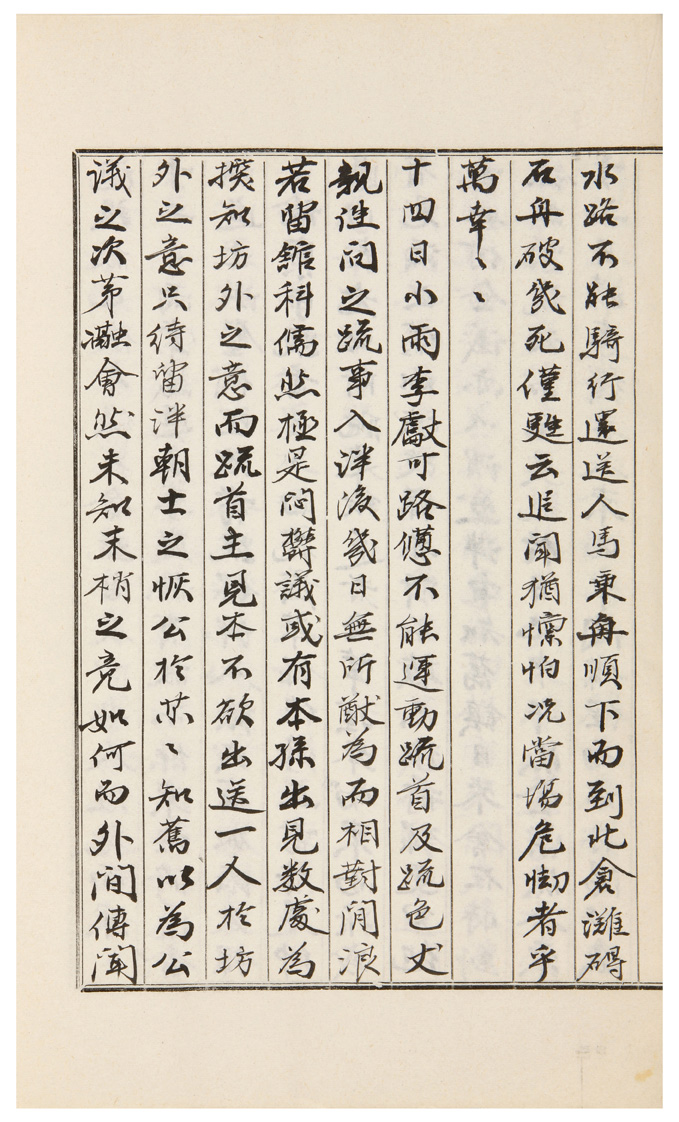 水路不能騎行還送人馬乘舟順下而到北倉灘碍
石舟破幾死僅甦云追聞猶懍怕况當場危㥘者乎
萬幸〻〻
十四日小雨李獻可路憊不能運動疏首及疏色丈
親進問之疏事入泮後幾日無所猷為而相對閒浪
若留館科儒然極是悶欝議或有本孫出見数處為
探知坊外之意而疏首主見本不欲出送一人於坊
外之意只待留泮朝士之恢公於共〻知舊以為公
議之次苐融會然未知末梢之竟如何而外間傳聞